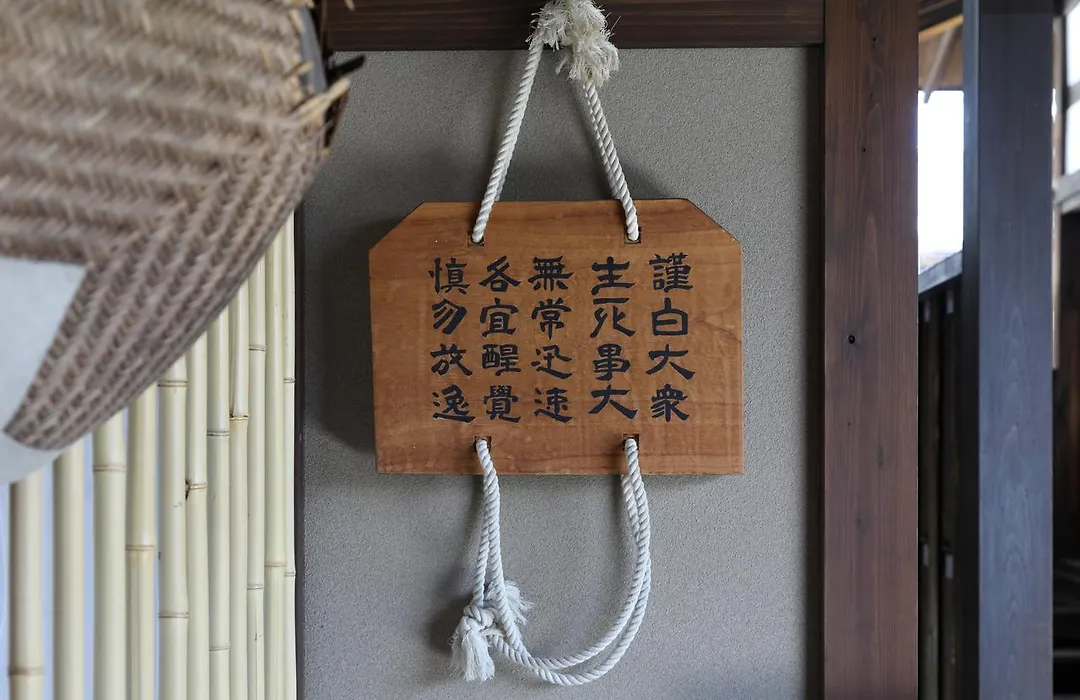 謹白大衆
生死事大
無常迅速
各宜醒覺
慎勿放逸